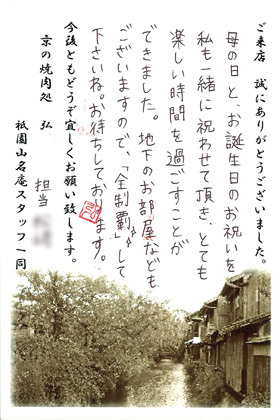 ご来店　誠にありがとうございました。
母の日と、お誕生日のお祝いを
私も一緒に祝わせて頂き、とても
楽しい時間を過ごすことが
できました。地下のお部屋なども
ございますので、「全制覇」して
下さいね。お待ちしております。
今後ともどうぞ宜しくお願い致します。
京の焼肉処　弘
祇園山名庵スタッフ一同
担当